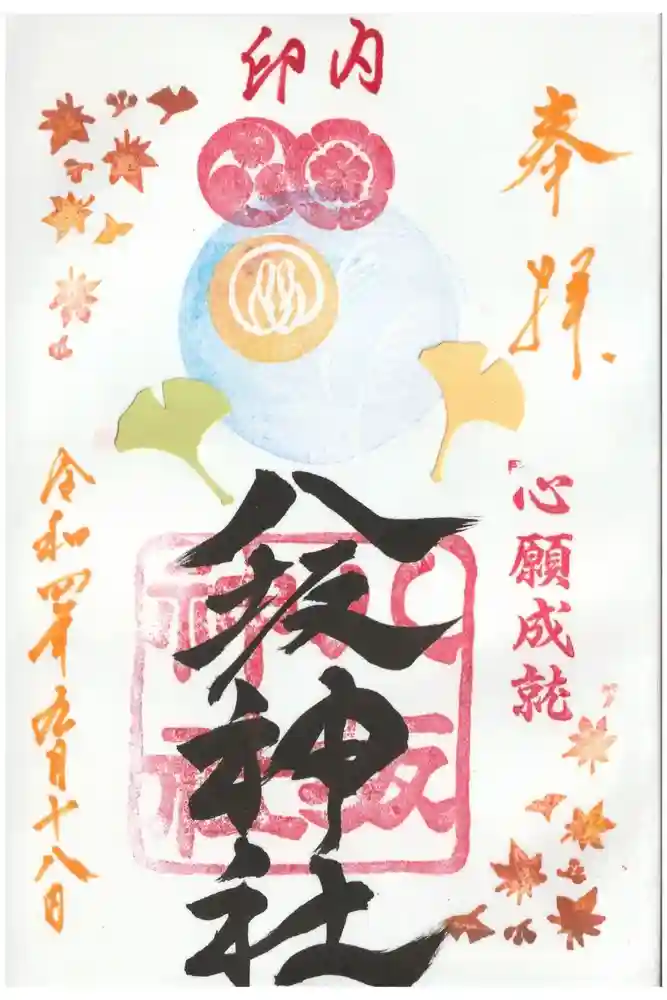 印内
奉拝
心願成就
八坂神社
八坂
神社
令和四年九月十八日